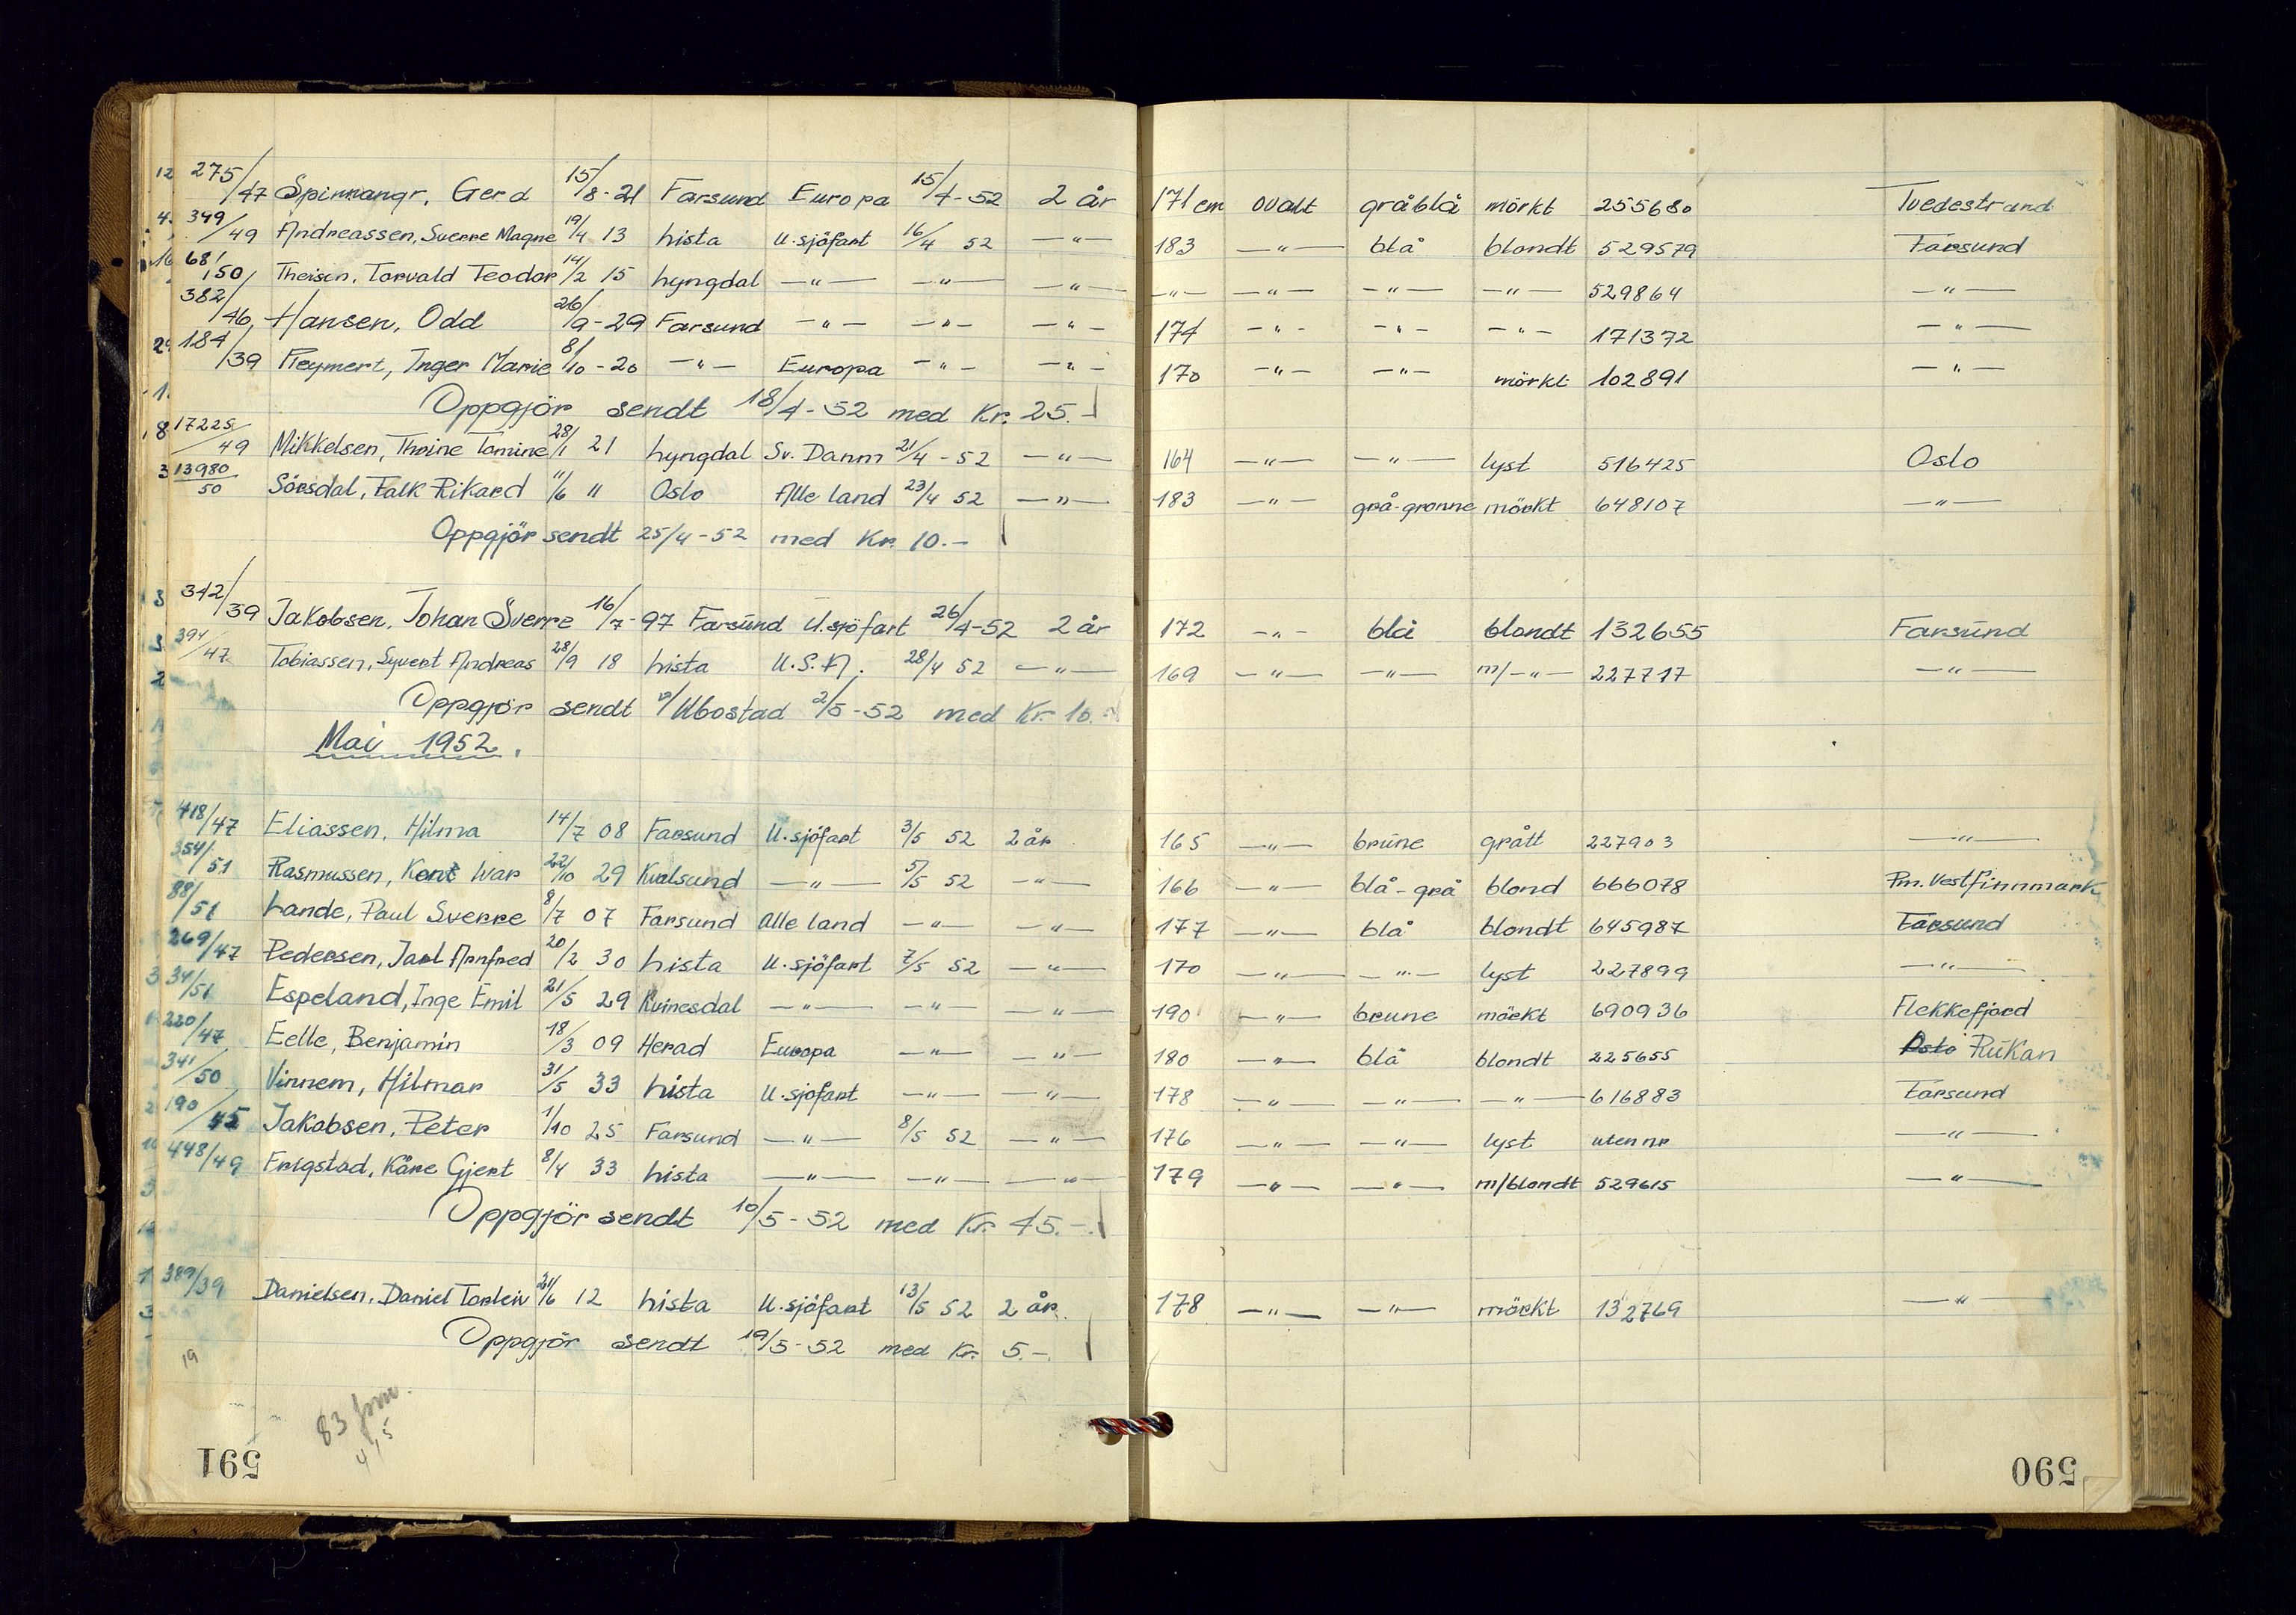 275/47 Spinnangr, Gerd 15/8-21 Farsund Europa 15/4-52 2 år 171 cm ovalt gråblå mörkt 255680 Tvedestrand
349/49 Andreassen, Sverre Magne 19/4 13 Lista U.sjöfart 16/4 52 —"— 183 —"— blå blondt 529579 Farsund
68/50 Theisen, Torvald Teodor 14/2 15 Lyngdal —"— —"— —"— —"— —"— —"— —"— 529864 —"—
382/46 Hansen, Odd 26/9-29 Farsund —"— —"— —"— 174 —"— —"— —"— 171372 —"—
184/39 Reymert, Inger Marie 8/10-20 —"— Europa —"— —"— 170 —"— —"— mörkt 102891 —"—
Oppgjör sendt 18/4-52 med Kr. 25.-
17225/49 Mikkelsen, Thoine Tomine 28/1 21 Lyngdal Sv. Danm 21/4-52 —"— 164 —"— —"— lyst 516425 Oslo
13980/50 Sörsdal, Falk Rikard 11/6 " Oslo Alle land 23/4 52 —"— 183 —"— grå-grønne mörkt 648107 —"—
Oppgjör sendt 25/4-52 med Kr. 10.-
342/39 Jakobsen, Johan Sverre 16/7-97 Farsund U.sjöfart 26/4-52 2 år 172 —"— blå blondt 132655 Farsund
394/47 Tobiassen, Syvert Andreas 28/9 18 Lista U.S.A. 28/4 52 —"— 169 —"— —"— m/—"— 227717 —"—
Oppgjör sendt Ubostad 2/5-52 med Kr. 10.
Mai 1952.
418/47 Eliassen, Hilma 14/7 08 Farsund U.sjöfart 3/5 52 2 år 165 —"— brune grått 227903 —"—
354/51 Rasmussen, Kont Ivar 22/10 29 Kvalsund —"— 5/5 52 —"— 166 —"— blå-grå blond 666078 Pm. Vestfinnmark
88/51 Lande, Paul Sverre 8/7 07 Farsund alle land —"— —"— 177 —"— blå blondt 645987 Farsund
269/47 Pedersen, Jarl Arnfred 20/2 30 Lista U.sjöfart 7/5 52 —"— 170 —"— —"— lyst 227899 —"—
34/51 Espeland, Inge Emil 21/5 29 Kvinesdal —"— —"— —"— 190 —"— brune mörkt 690936 Flekkefjord
220/47 Eelle, Benjamin 18/3 09 Herad Europa —"— —"— 180 —"— blå blondt 225655 Oslo Rukan
341/50 Vinnem, Hilmar 31/5 33 Lista U.sjöfart —"— —"— 178 —"— —"— —"— 616883 Farsund
190/45 Jakobsen, Peter 1/10 25 Farsund —"— 8/5 52 —"— 176 —"— —"— lyst uten nr —"—
448/49 Frigstad, Kåre Gjert 8/4 33 Lista —"— —"— —"— 179 —"— —"— m/blondt 529615 —"—
Oppgjör sendt 10/5-52 med Kr. 45.-
389/39 Danielsen, Daniel Torleiv 21/6 12 Lista U.sjöfart 13/5 52 2 år. 178 —"— —"— mörkt 132769 —"—
Oppgjör sendt 19/5-52 med Kr. 5.-
19
83
591
590